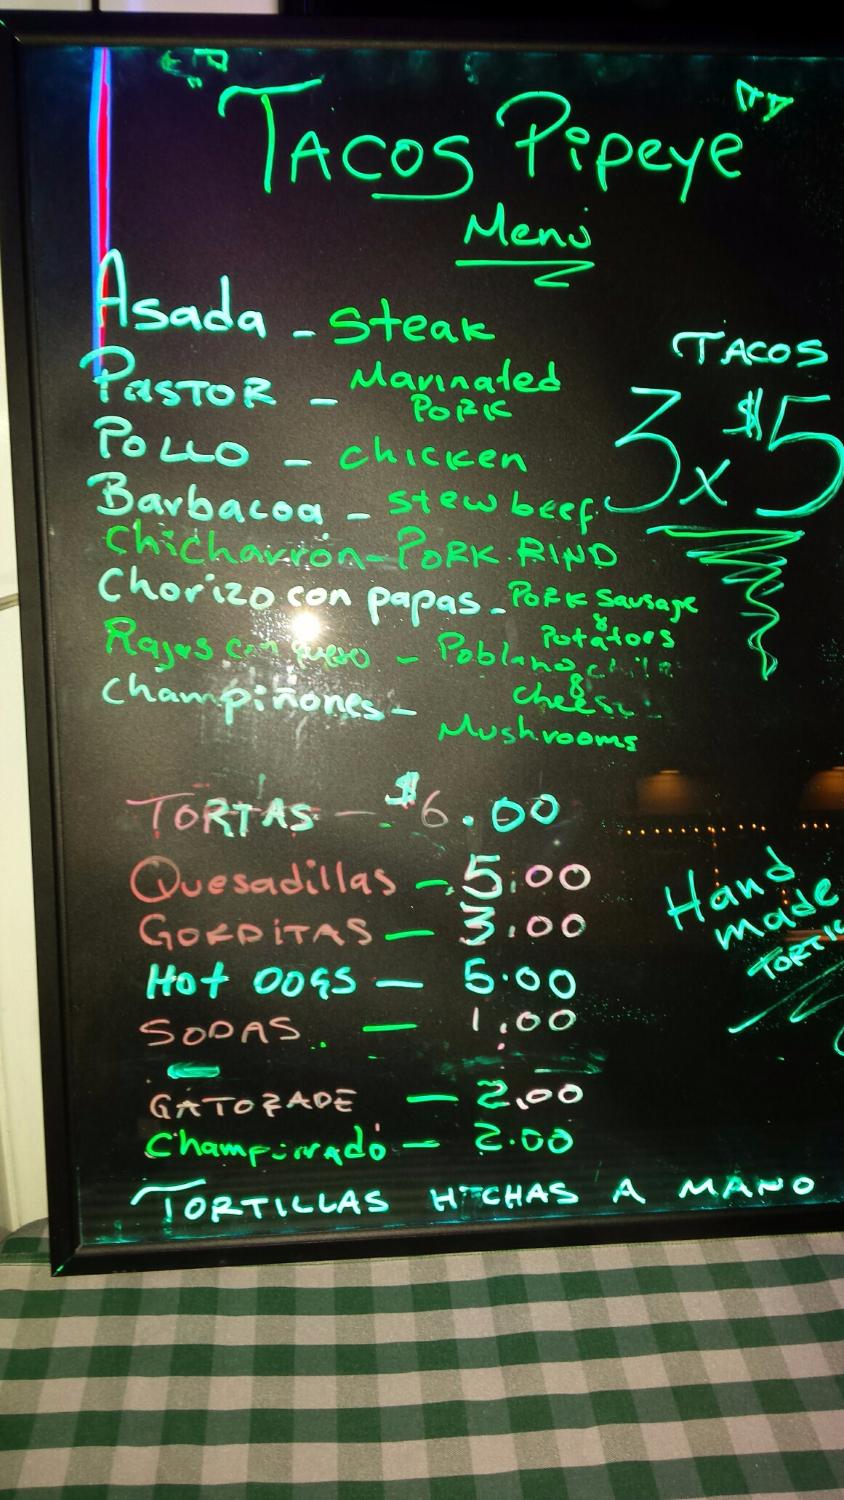 TACOS Pipeye
Menú
Asada - Steak
PASTOR - Marinated
PORK
POLLO - chicken
Barbacoa - stew beef
Chicharrón - PORK RIND
Chorizo con papas - PORK Sausage
&
Potatoes
Rajas con queso - Poblano chile
&
cheese
Champiñones - Mushrooms
TACOS
3x$5
TORTAS - $6.00
Quesadillas - 5.00
GORDITAS - 3.00
HOt DOGS - 5.00
SODAS - 1.00
GATORADE - 2.00
Champurrado - 2.00
Hand
made
TORTILLAS HECHAS A MANO